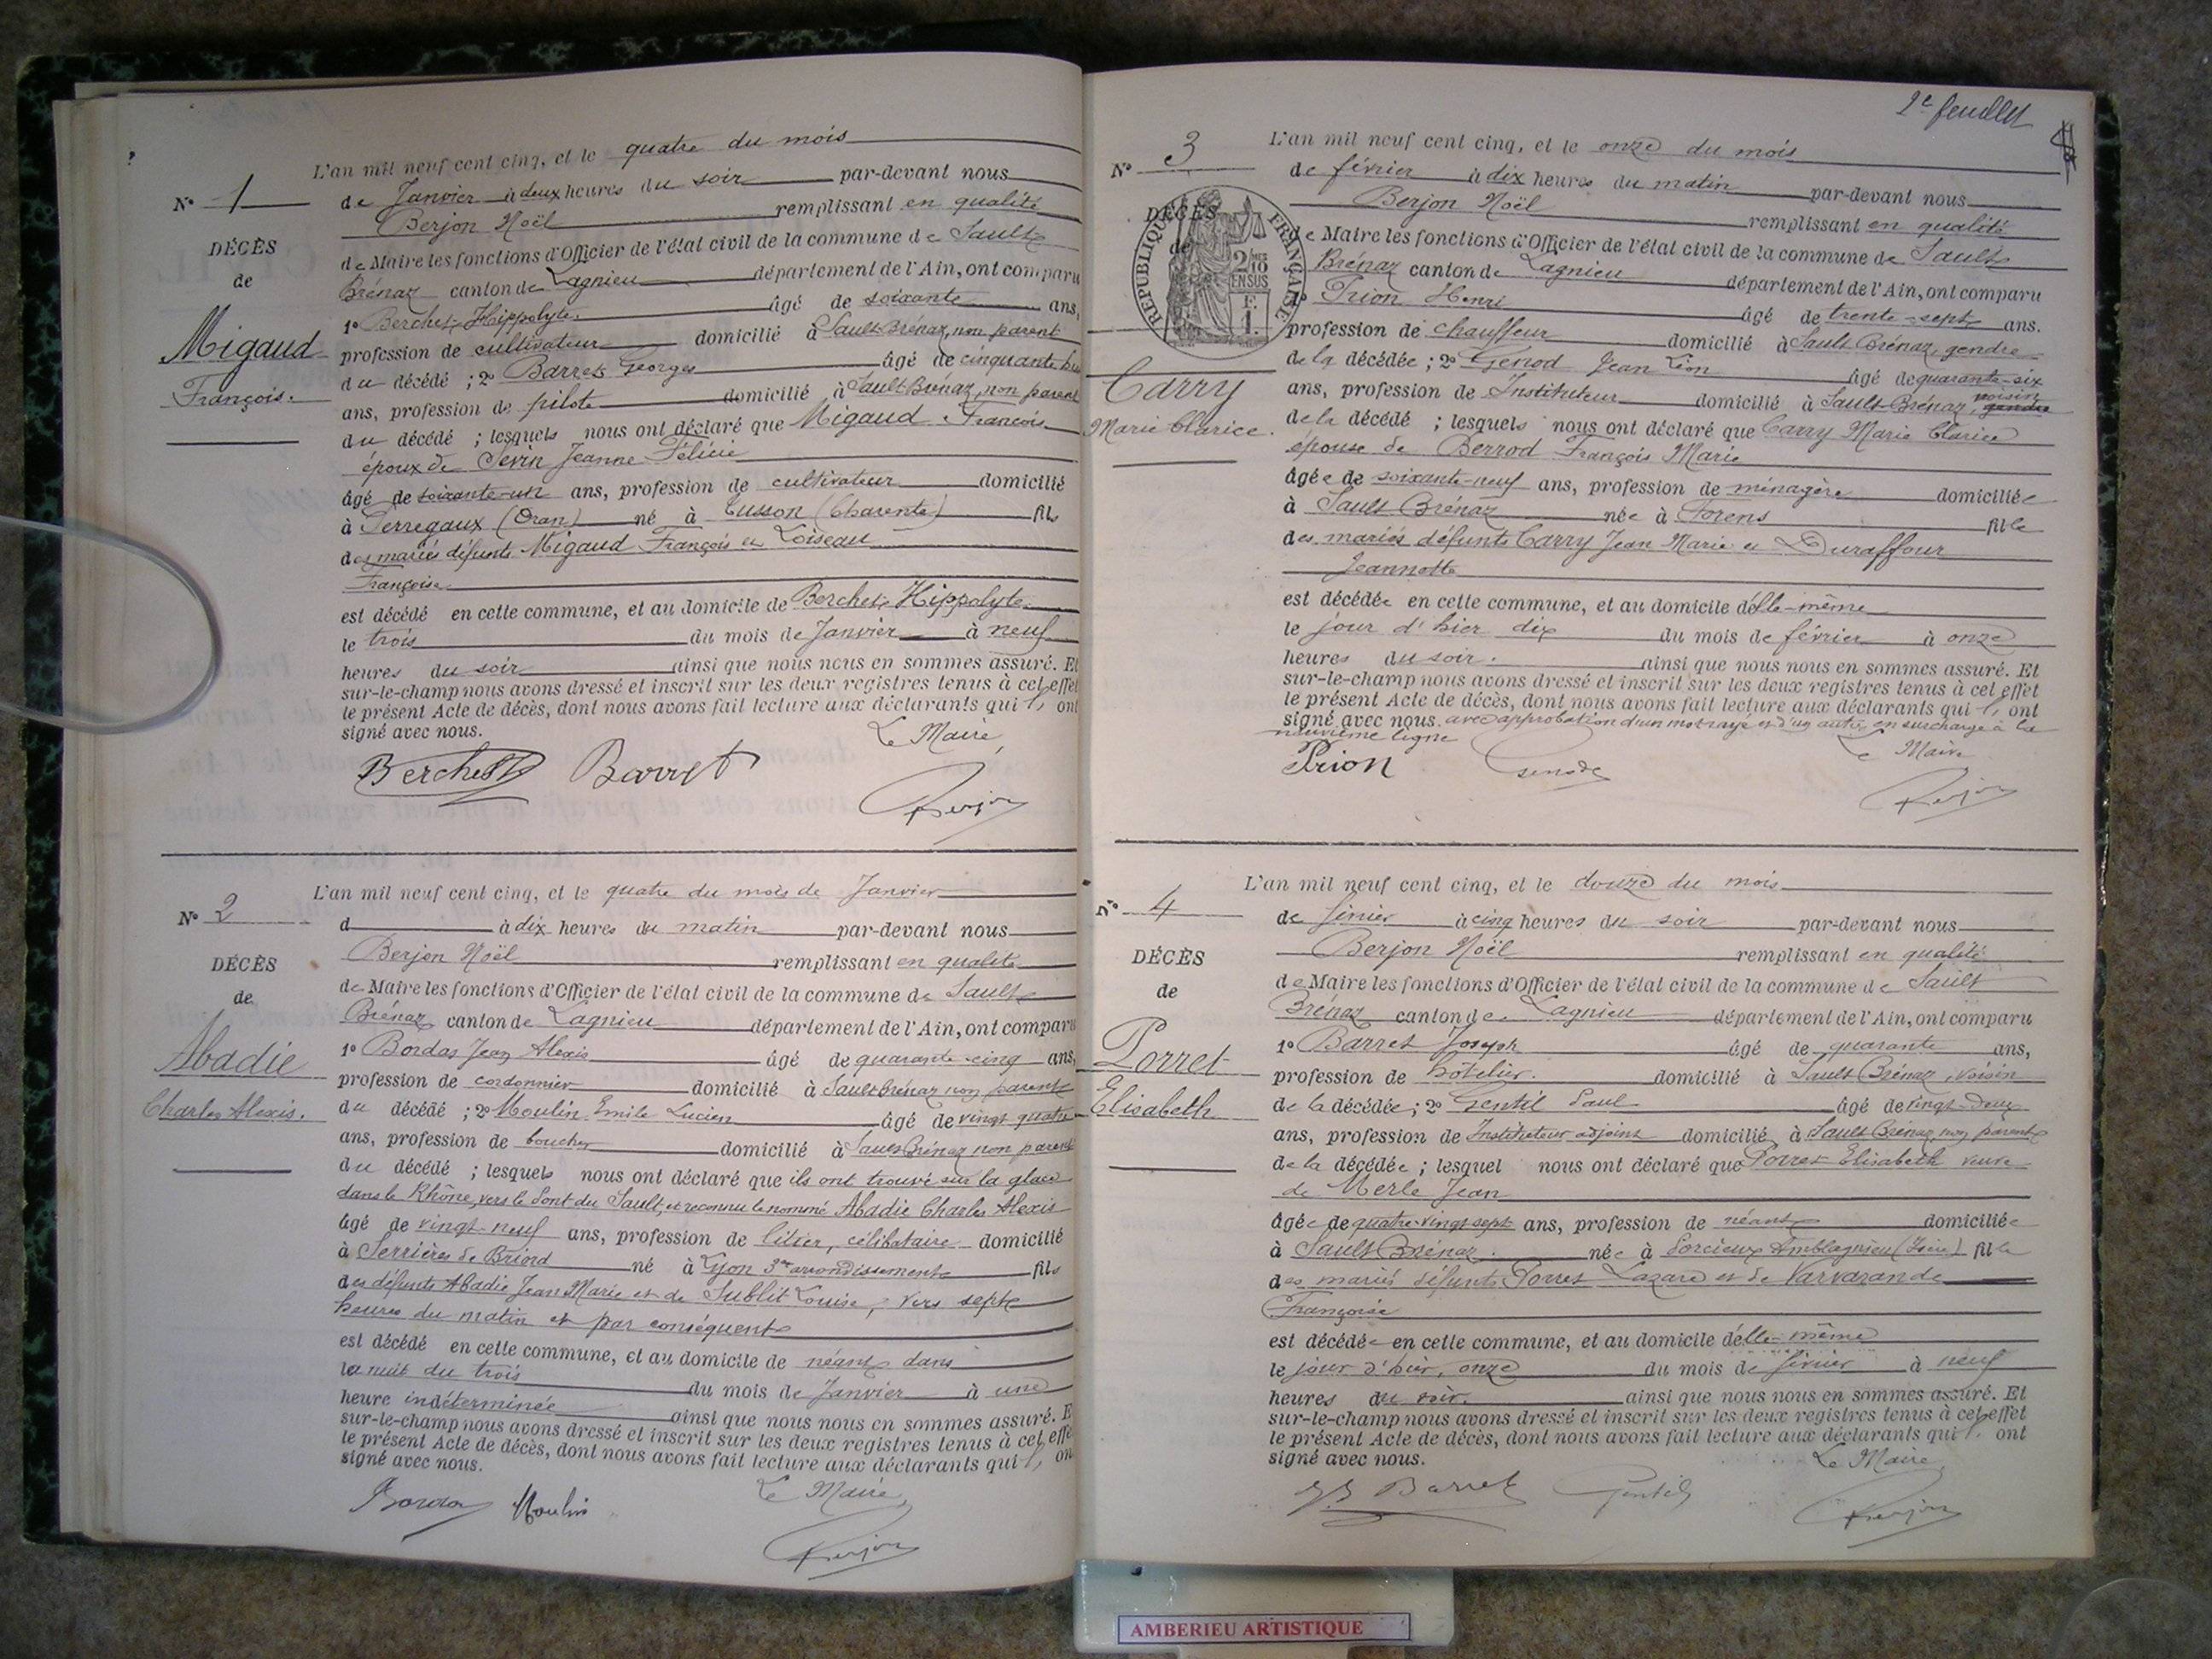 L'an mil neuf cent cinq, et le quatre du mois
N° 1
de Janvier à deux heures du soir par-devant nous
Berjon Noël remplissant en qualité
de Maire les fonctions d'Officier de l'état civil de la commune de Sault
DÉCÈS
de
Brénaz canton de Lagnieu département de l'Ain, ont comparu
1° Berchet Hippolyte âgé de soixante ans,
Migaud
François.
profession de cultivateur domicilié à Sault-Brénaz, non parent
du décédé ; 2° Barret Georges âgé de cinquante
ans, profession de pilote domicilié à Sault-Brénaz, non parent
du décédé ; lesquels nous ont déclaré que Migaud François
époux de Sevin Jeanne Félicie
âgé de soixante-un ans, profession de cultivateur domicilié
à Perregaux (Oran) né à Tusson (Charente) fils
des mariés défunts Migaud François et Loiseau
Françoise
est décédé en cette commune, et au domicile de Berchet Hippolyte
le trois du mois de Janvier à neuf
heures du soir ainsi que nous nous en sommes assuré. Et
sur-le-champ nous avons dressé et inscrit sur les deux registres tenus à cet effet
le présent Acte de décès, dont nous avons fait lecture aux déclarants qui ont
signé avec nous.
Le Maire,
Berchet Barret
Berjon
L'an mil neuf cent cinq, et le quatre du mois de Janvier
N° 2
d à dix heures du matin par-devant nous
Berjon Noël remplissant en qualité
DÉCÈS
de
de Maire les fonctions d'Officier de l'état civil de la commune de Sault
Brénaz canton de Lagnieu département de l'Ain, ont comparu
Abadie
Charles Alexis.
1° Bordas Jean Alexis âgé de quarante-cinq ans,
profession de cordonnier domicilié à Sault-Brénaz non parent
du décédé ; 2° Moulin Emile Lucien âgé de vingt quatre
ans, profession de boucher domicilié à Sault-Brénaz non parent
du décédé ; lesquels nous ont déclaré que ils ont trouvé sur la glace
dans le Rhône, vers le Pont du Sault, et reconnu le nommé Abadie Charles Alexis
âgé de vingt-neuf ans, profession de litier, célibataire domicilié
à Serrières de Briord né à Lyon 3me arrondissement fils
des défunts Abadie Jean Marie et de Sublit Louise, vers sept
heures du matin et par conséquent
est décédé en cette commune, et au domicile de néant dans
la nuit du trois du mois de Janvier à une
heure indéterminée ainsi que nous nous en sommes assuré. E
sur-le-champ nous avons dressé et inscrit sur les deux registres tenus à cet effe
le présent Acte de décès, dont nous avons fait lecture aux déclarants qui on
signé avec nous.
Le Maire,
Bordas Moulin
Berjon
2e feuillet
L'an mil neuf cent cinq, et le onze du mois
N° 3
de février à dix heures du matin par-devant nous
Berjon Noël remplissant en qualité
DÉCÈS
de
RÉPUBLIQUE FRANÇAISE
2/10 EN SUS
F. 1.
de Maire les fonctions d'Officier de l'état civil de la commune de Sault
Brénaz canton de Lagnieu département de l'Ain, ont comparu
1° Prion Henri âgé de trente-sept ans.
Carry
Marie Clarice.
profession de chauffeur domicilié à Sault-Brénaz, gendre
de la décédée ; 2° Genod Jean Léon âgé de quarante-six
ans, profession de Instituteur domicilié à Sault-Brénaz, gendre voisin
de la décédé ; lesquels nous ont déclaré que Carry Marie Clarice
épouse de Berrod François Marie
âgée de soixante-neuf ans, profession de ménagère domiciliée
à Sault-Brénaz née à Torens fille
des mariés défunts Carry Jean Marie et Duraffour
Jeannette
est décédée en cette commune, et au domicile d'elle-même
le jour d'hier dix du mois de février à onze
heures du soir. ainsi que nous nous en sommes assuré. Et
sur-le-champ nous avons dressé et inscrit sur les deux registres tenus à cet effet
le présent Acte de décès, dont nous avons fait lecture aux déclarants qui ont
signé avec nous. avec approbation d'un mot rayé et d'un autre en surcharge à la
neuvième ligne
Le Maire
Prion Genod
Berjon
L'an mil neuf cent cinq, et le douze du mois
N° 4
de février à cinq heures du soir par-devant nous
Berjon Noël remplissant en qualité
DÉCÈS
de
de Maire les fonctions d'Officier de l'état civil de la commune de Sault
Brénaz canton de Lagnieu département de l'Ain, ont comparu
Porret
Elisabeth
1° Barret Joseph âgé de quarante ans,
profession de hôtelier. domicilié à Sault-Brénaz, voisin
de la décédée ; 2° Gentil Paul âgé de vingt-deux
ans, profession de Instituteur adjoint domicilié à Sault-Brénaz, non parent
de la décédée ; lesquel nous ont déclaré que Porret Elisabeth veuve
de Merle Jean
âgée de quatre-vingt sept ans, profession de néant domiciliée
à Sault-Brénaz née à Porcieux Amblagnieu (Isère) fille
des mariés défunts Porret Lazare et de Varvarande
Françoise
est décédée en cette commune, et au domicile d'elle-même
le jour d'hier, onze du mois de février à neuf
heures du soir. ainsi que nous nous en sommes assuré. Et
sur-le-champ nous avons dressé et inscrit sur les deux registres tenus à cet effet
le présent Acte de décès, dont nous avons fait lecture aux déclarants qui ont
signé avec nous.
Le Maire,
Barret Gentil
Berjon
AMBERIEU ARTISTIQUE